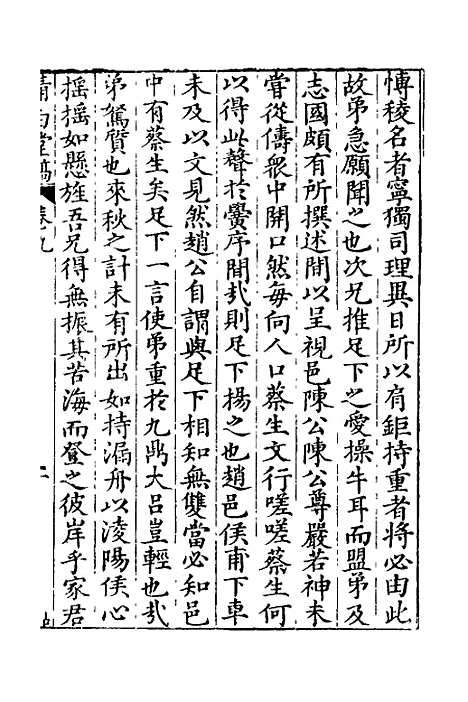 愽稜名者寧獨司理異日所以肩鉅持重者將必由此
故弟急願聞之也次兄推足下之愛操牛耳而盟弟及
志國頗有所撰述間以呈視邑陳公陳公尊嚴若神未
甞從儔衆中開口然每向人口蔡生文行嗟嗟蔡生何
以得此聲扵黌序間㢤則足下揚之也趙邑侯甫下車
未及以文見然趙公自謂與足下相知無雙當必知邑
中有蔡生矣足下一言使弟重扵九鼎大吕豈輕也㢤
弟駑質也來秋之計未有所出如持漏舟以淩陽侯心
摇摇如懸旌吾兄得無振其苦海而登之彼岸乎家君
清白堂稿
卷九
二